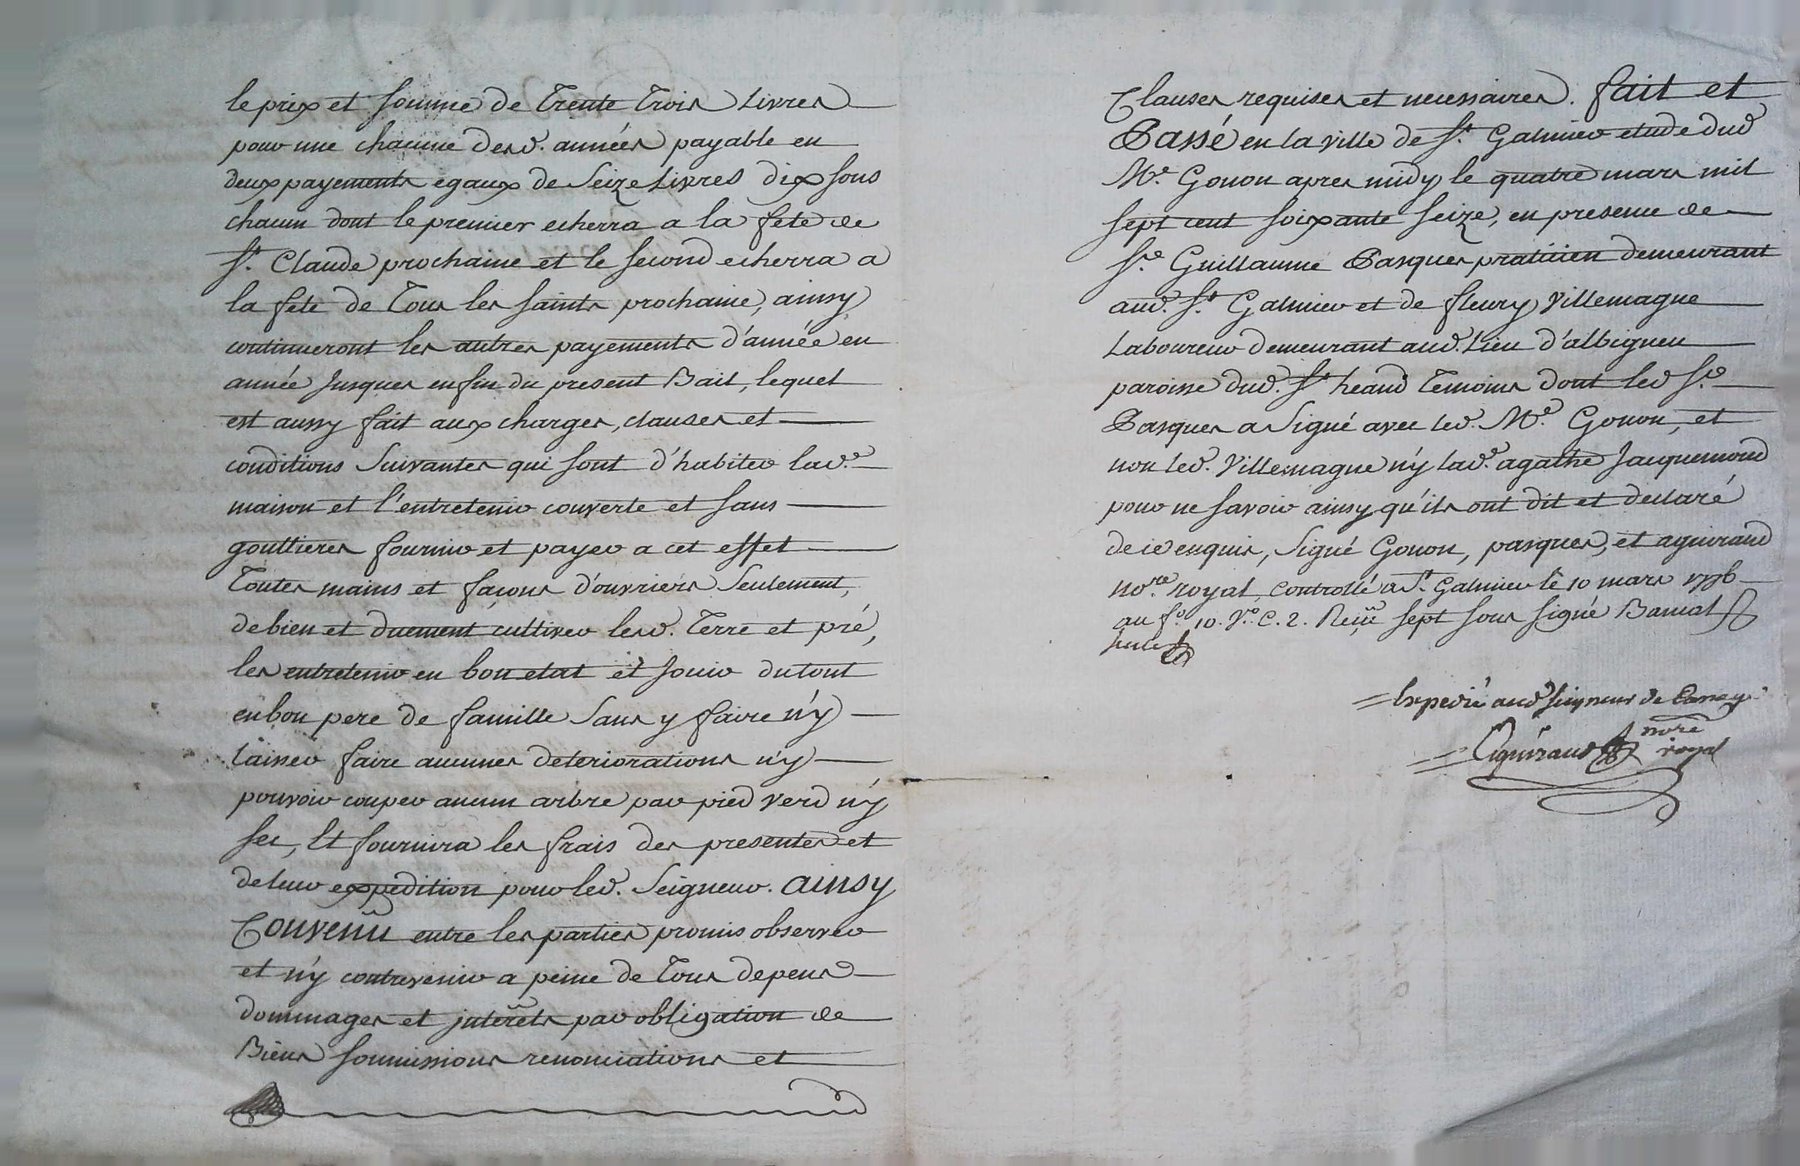 le prix et somme de Trente Trois Livres
pour une chacune desd. années payable en
deux payements egaux de Seize Livres dix sous
chacun dont le premier echerra a la fete de
St. Claude prochaine et le second echerra a
la fete de Tous les saints prochaine, ainsy
continueront les autres payements d'année en
année Jusques en fin du present Bail, lequel
est aussy fait aux charges, clauses et
conditions Suivantes qui sont d'habiter lad.e
maison et l'entretenir couverte et sans
gouttieres fournir et payer a cet effet
Toutes mains et façons d'ouvriers Seulement,
de bien et duement cultiver lesd. Terre et pré,
les entretenir en bon etat et Jouir du tout
en bon pere de famille Sans y faire n'y
laisser faire aucunes deteriorations n'y
pouvoir couper aucun arbre par pied verd n'y
sec, Et fournira les frais des presentes et
de leur expedition pour led. Seigneur. ainsy
Convenu entre les parties promis observer
et n'y contrevenir a peine de Tous depens
dommages et interets par obligation de
Biens soumissions renonciations et
Clauses requises et necessaires. fait et
Passé en la ville de St. Galmier etude dud
Me. Gonon apres midy le quatre mars mil
sept cent soixante seize, en presence de
Sr. Guillaume Pasques praticien demeurant
aud. St. Galmier et de fleury Villemagne
Laboureur demeurant aud. Lieu d'albigneu
paroisse dud. St. heand Temoins dont led Sr.
Pasques a Signé avec led. Me. Gonon, et
non led. Villemagne n'y lad.e agathe Jacquemond
pour ne savoir ainsy qu'ils ont dit et declaré
de ce enquis, Signé Gonon, pasques, et aguiraud
no.re royal, Controllé a St. Galmier le 10 mars 1776
au f.o 10. V.o C. 2. Reçu sept sous signé Barnat
Expedié aud seigneur de
Aguiraud nore
royal